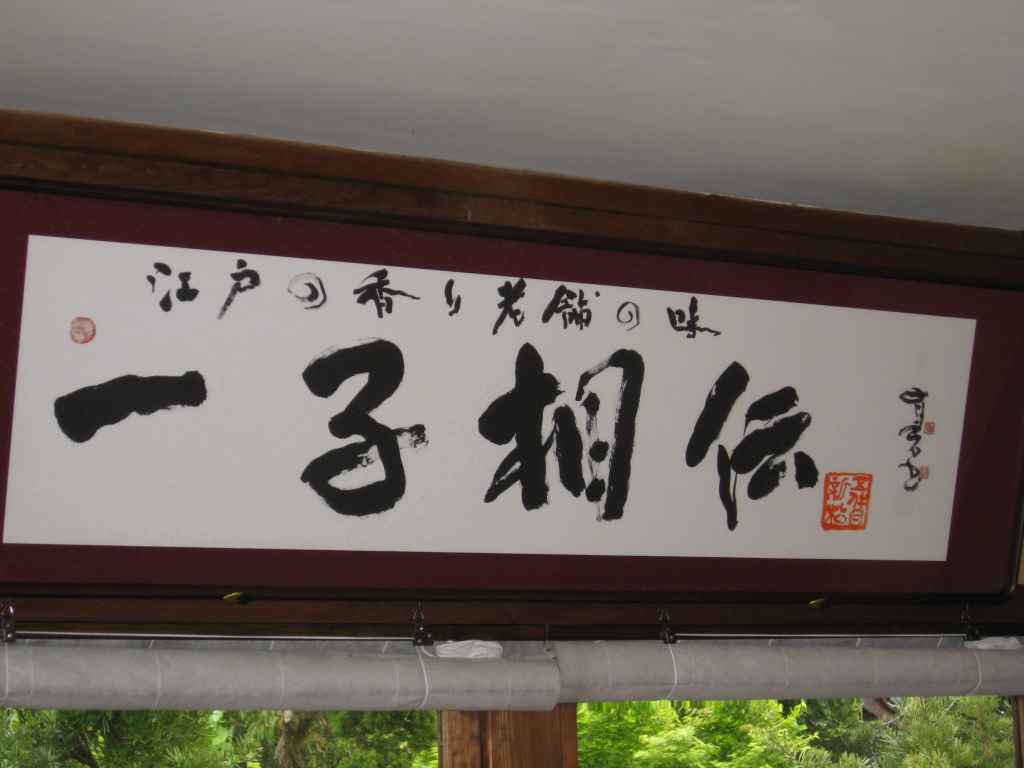 江戸の香り老舗の味
一子相伝